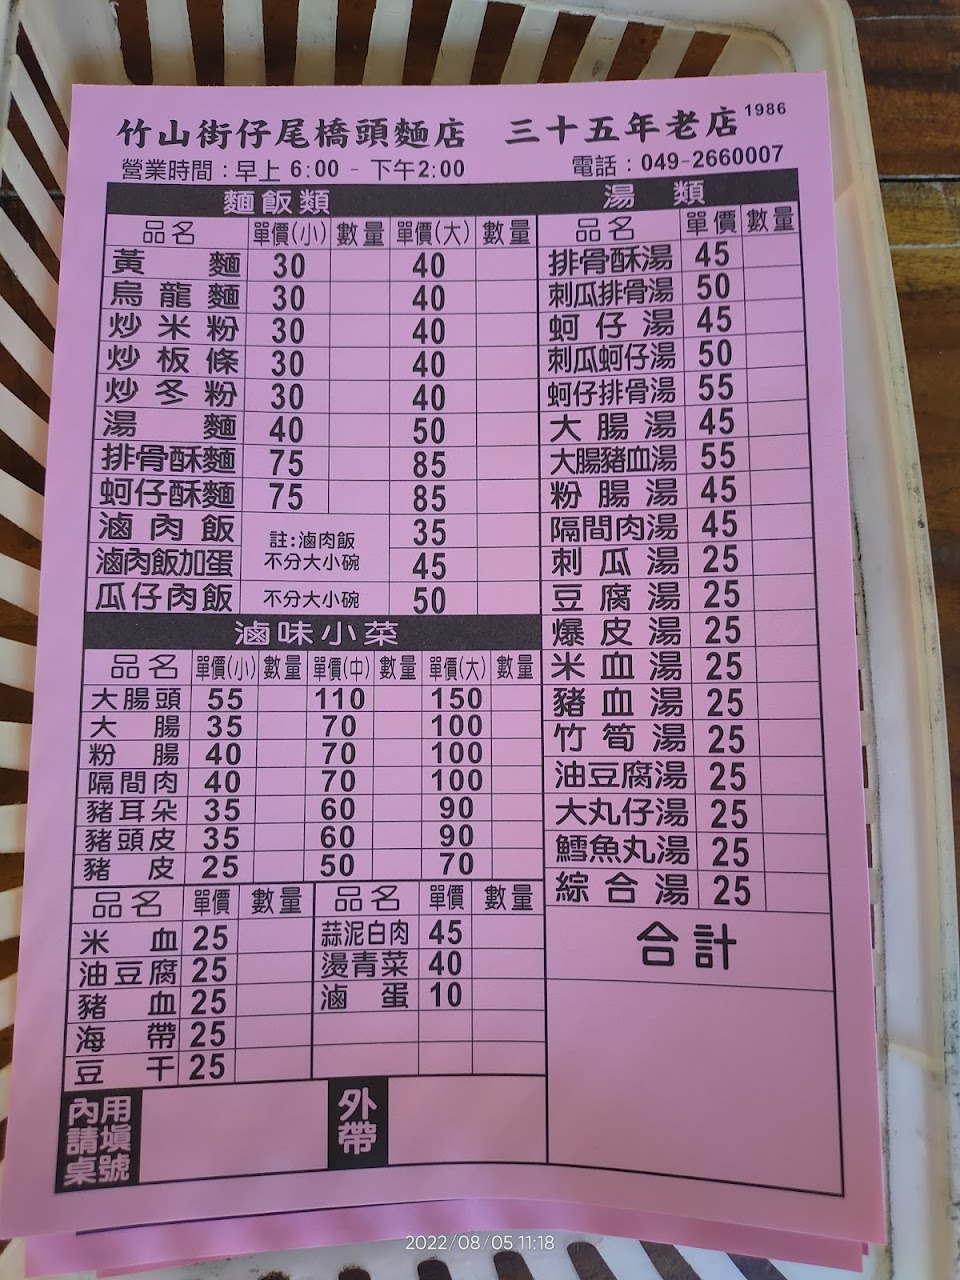 竹山街仔尾橋頭麵店 三十五年老店 1986
營業時間:早上 6:00 - 下午2:00 電話:049-2660007
麵飯類
品名 單價(小) 數量 單價(大) 數量
黃麵 30 40
烏龍麵 30 40
炒米粉 30 40
炒板條 30 40
炒冬粉 30 40
湯麵 40 50
排骨酥麵 75 85
蚵仔酥麵 75 85
滷肉飯 註:滷肉飯 35
滷肉飯加蛋 不分大小碗 45
瓜仔肉飯 不分大小碗 50
湯類
品名 單價 數量
排骨酥湯 45
刺瓜排骨湯 50
蚵仔湯 45
刺瓜蚵仔湯 50
蚵仔排骨湯 55
大腸湯 45
大腸豬血湯 55
粉腸湯 45
隔間肉湯 45
刺瓜湯 25
豆腐湯 25
爆皮湯 25
米血湯 25
豬血湯 25
竹筍湯 25
油豆腐湯 25
大丸仔湯 25
鱈魚丸湯 25
綜合湯 25
合計
滷味小菜
品名 單價(小) 數量 單價(中) 數量 單價(大) 數量
大腸頭 55 110 150
大腸 35 70 100
粉腸 40 70 100
隔間肉 40 70 100
豬耳朵 35 60 90
豬頭皮 35 60 90
豬皮 25 50 70
品名 單價 數量 品名 單價 數量
米血 25 蒜泥白肉 45
油豆腐 25 燙青菜 40
豬血 25 滷蛋 10
海帶 25
豆干 25
內用
請填
桌號
外帶
2022/08/05 11:18